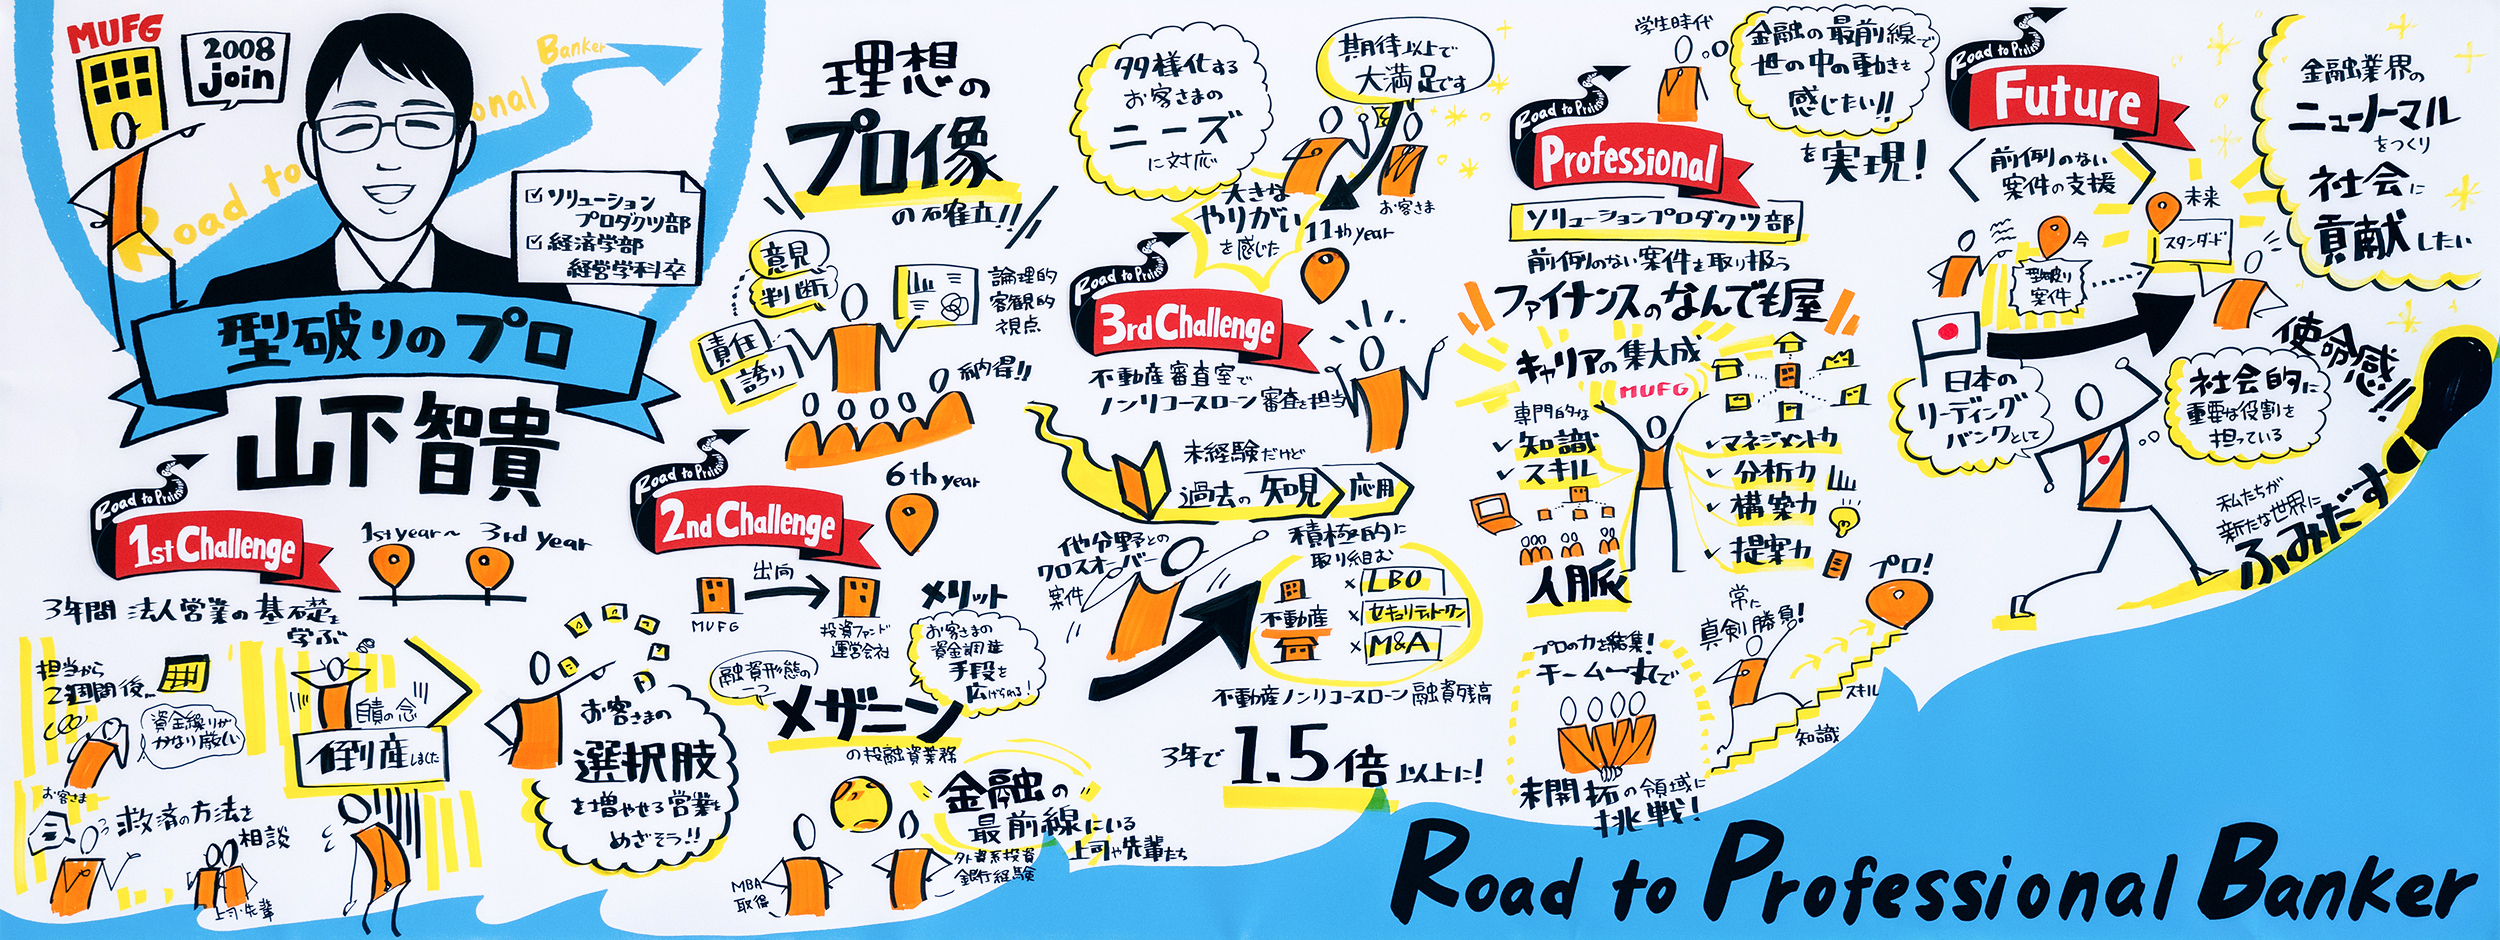 MUFG
2008
join
Road to Professional Banker
ソリューション
プロダクツ部
経済学部
経営学科卒
型破りのプロ
山下智貴
Road to Profes
1st Challenge
1st year〜
3rd year
3年間 法人営業の基礎を
学ぶ
担当から
2週間後…
資金繰りが
かなり厳しい
お客さま
自責の念
倒産しました
救済の方法を
相談
上司・先輩
お客さまの
選択肢
を増やせる営業を
めざそう!!
理想の
プロ像
の確立!!
意見
判断
責任
誇り
論理的
客観的
視点
納得!!
Road to Profes
2nd Challenge
6th year
出向
MUFG
投資ファンド
運営会社
メリット
お客さまの
資金調達
手段を
広げられる!
融資形態の
一つ
メザニン
の投融資業務
金融の
最前線にいる
上司や先輩たち
MBA
取得
外資系投資
銀行経験
多様化する
お客さまの
ニーズ
に対応
期待以上で
大満足です
お客さま
大きな
やりがい
を感じた
11th year
Road to Profes
3rd Challenge
不動産審査室で
ノンリコースローン審査を担当
未経験だけど
過去の知見
応用
他分野との
クロスオーバー
案件
積極的に
取り組む
不動産
×LBO
×セキュリティトークン
×M&A
不動産ノンリコースローン融資残高
3年で1.5倍以上に!
学生時代
金融の最前線で
世の中の動きを
感じたい!!
を実現!
Road to Profes
Professional
ソリューションプロダクツ部
前例のない案件を取り扱う
ファイナンスのなんでも屋
キャリアの集大成
MUFG
専門的な
知識
スキル
人脈
マネジメント力
分析力
構築力
提案力
プロの力を結集!
チーム一丸で
未開拓の領域に
挑戦!
常に
真剣勝負!
プロ!
スキル
知識
Road to Profes
Future
前例のない
案件の支援
今
型破り
案件
未来
スタンダード
金融業界の
ニューノーマル
をつくり
社会に
貢献したい
日本の
リーディング
バンクとして
社会的に
重要な役割を
担っている
使命感!!
私たちが
新たな世界に
ふみだす
Road to Professional Banker